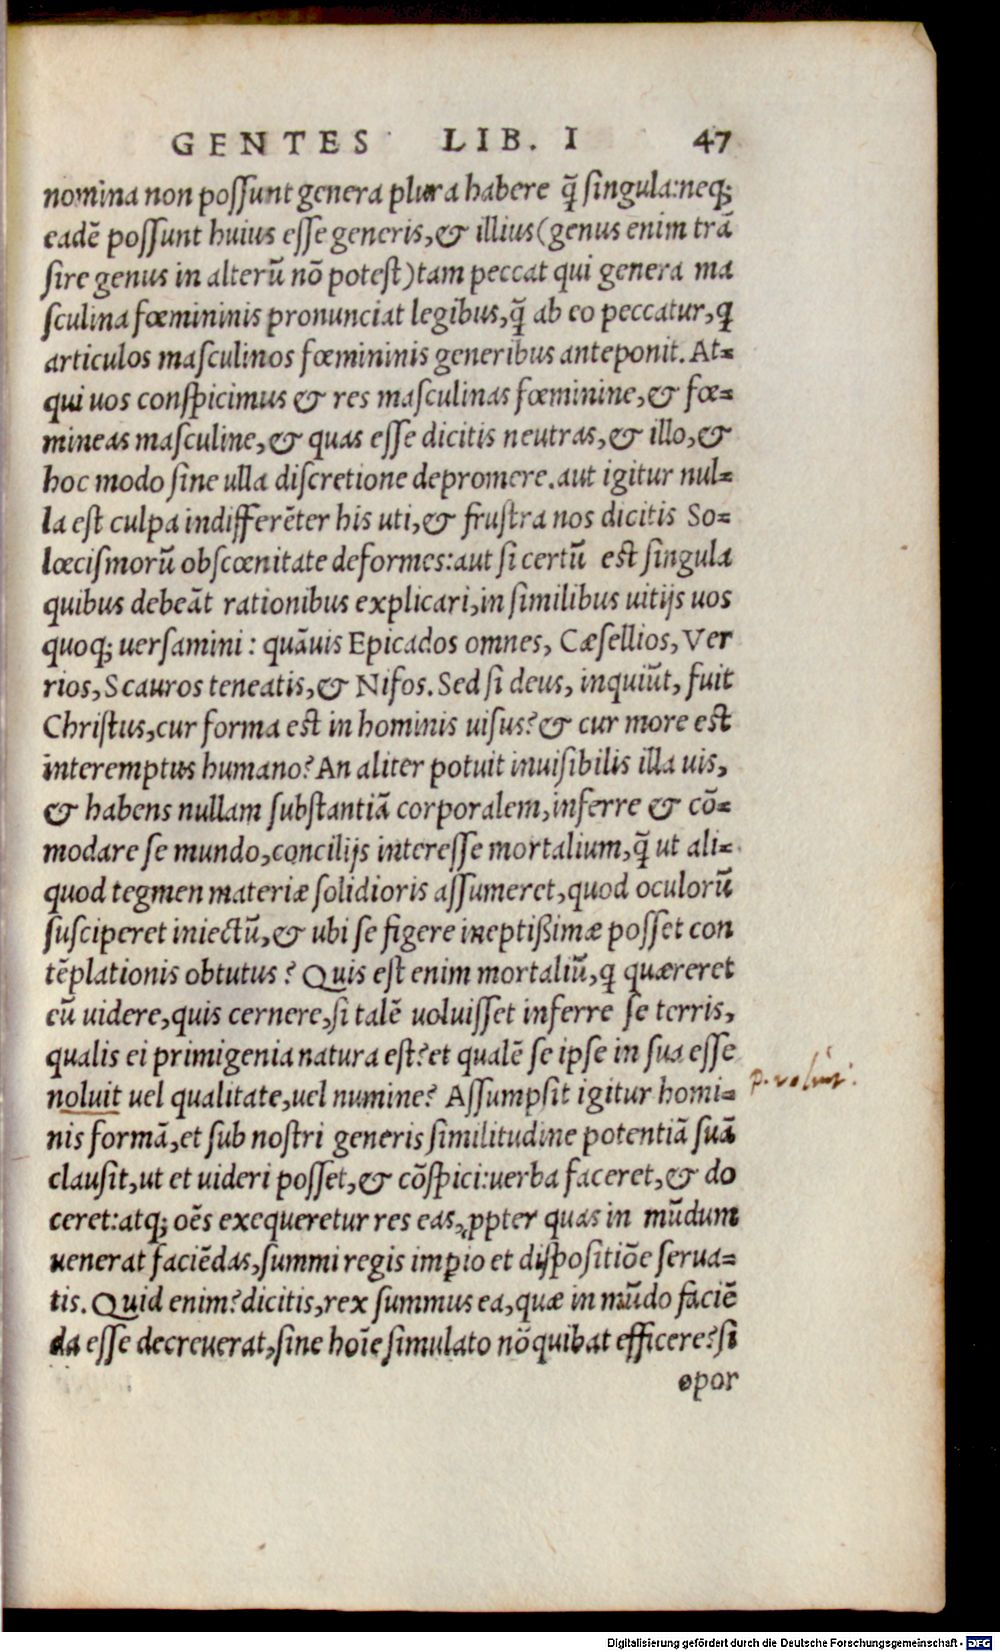 GENTES LIB. I 47
nomina non possunt genera plura habere q̃ singula:neq;
eadē possunt huius esse generis,& illius(genus enim trā
sire genus in alterū nō potest)tam peccat qui genera ma
sculina fœmininis pronunciat legibus,q̃ ab eo peccatur,q
articulos masculinos fœmininis generibus anteponit. At=
qui uos conspicimus & res masculinas fœminine,& fœ=
mineas masculine,& quas esse dicitis neutras,& illo,&
hoc modo sine ulla discretione depromere.aut igitur nul=
la est culpa indifferēter his uti,& frustra nos dicitis So=
lœcismorū obscœnitate deformes:aut si certū est singula
quibus debeāt rationibus explicari,in similibus uitijs uos
quoq; uersamini: quāuis Epicados omnes, Cæsellios, Ver
rios, Scauros teneatis,& Nisos. Sed si deus, inquiūt, fuit
Christus,cur forma est in hominis uisus?& cur more est
interemptus humano?An aliter potuit inuisibilis illa uis,
& habens nullam substantiā corporalem,inferre & cō=
modare se mundo,concilijs interesse mortalium,q̃ ut ali=
quod tegmen materiæ solidioris assumeret,quod oculorū
susciperet iniectū,& ubi se figere ineptißimæ posset con
tēplationis obtutus? Quis est enim mortaliū,q quæreret
eū uidere,quis cernere,si talē uoluisset inferre se terris,
qualis ei primigenia natura est?et qualē se ipse in sua esse
noluit uel qualitate,uel numine? Assumpsit igitur homi= p. voluit.
nis formā,et sub nostri generis similitudine potentiā suā
clausit,ut et uideri posset,& cōspici:uerba faceret,& do
ceret:atq; oēs exequeretur res eas,ꝓpter quas in mūdum
uenerat faciēdas,summi regis imꝑio et dispositiōe serua=
tis. Quid enim?dicitis,rex summus ea,quæ in mūdo faciē
da esse decreuerat,sine hoīe simulato nō quibat efficere?si
opor
Digitalisierung gefördert durch die Deutsche Forschungsgemeinschaft - DFG